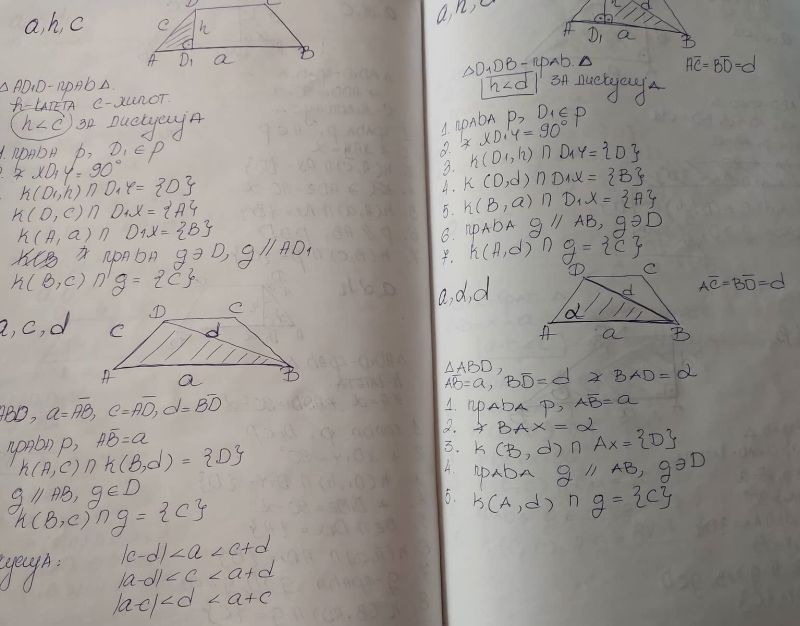 a, h, c
D
c
h
A D₁ a B
△AD₁D - прав △.
h - катета c - хипот.
h < c за дискусија
1. права p, D₁ ∈ p
2. ∡ XD₁Y = 90°
k(D₁, h) ∩ D₁Y = {D}
k(D, c) ∩ D₁X = {A}
k(A, a) ∩ D₁X = {B}
права g ∋ D, g // AD₁
k(B, c) ∩ g = {C}
a, c, d
c D C
d
A a B
ABD, a = A̅B̅, c = A̅D̅, d = B̅D̅
права p, A̅B̅ = a
k(A, c) ∩ k(B, d) = {D}
g // AB, g ∈ D
k(B, c) ∩ g = {C}
|c-d| < a < c+d
|a-d| < c < a+d
|a-c| < d < a+c
a, h, d
h d
A D₁ a B
△D₁DB - прав. △
A̅C̅ = B̅D̅ = d
h < d за дискусија
1. права p, D₁ ∈ p
2. ∡ XD₁Y = 90°
3. k(D₁, h) ∩ D₁Y = {D}
4. k(D, d) ∩ D₁X = {B}
5. k(B, a) ∩ D₁X = {A}
6. права g // AB, g ∋ D
7. k(A, d) ∩ g = {C}
a, α, d
D C
A̅C̅ = B̅D̅ = d
α d
A a B
△ABD,
A̅B̅ = a, B̅D̅ = d ∡ BAD = α
1. права p, A̅B̅ = a
2. ∡ BAX = α
3. k(B, d) ∩ AX = {D}
4. права g // AB, g ∋ D
5. k(A, d) ∩ g = {C}